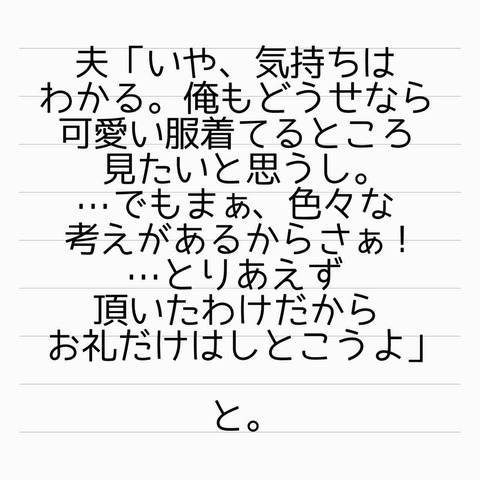 夫「いや、気持ちは
わかる。俺もどうせなら
可愛い服着てるところ
見たいと思うし。
…でもまぁ、色々な
考えがあるからさぁ！
…とりあえず
頂いたわけだから
お礼だけはしとこうよ」
と。